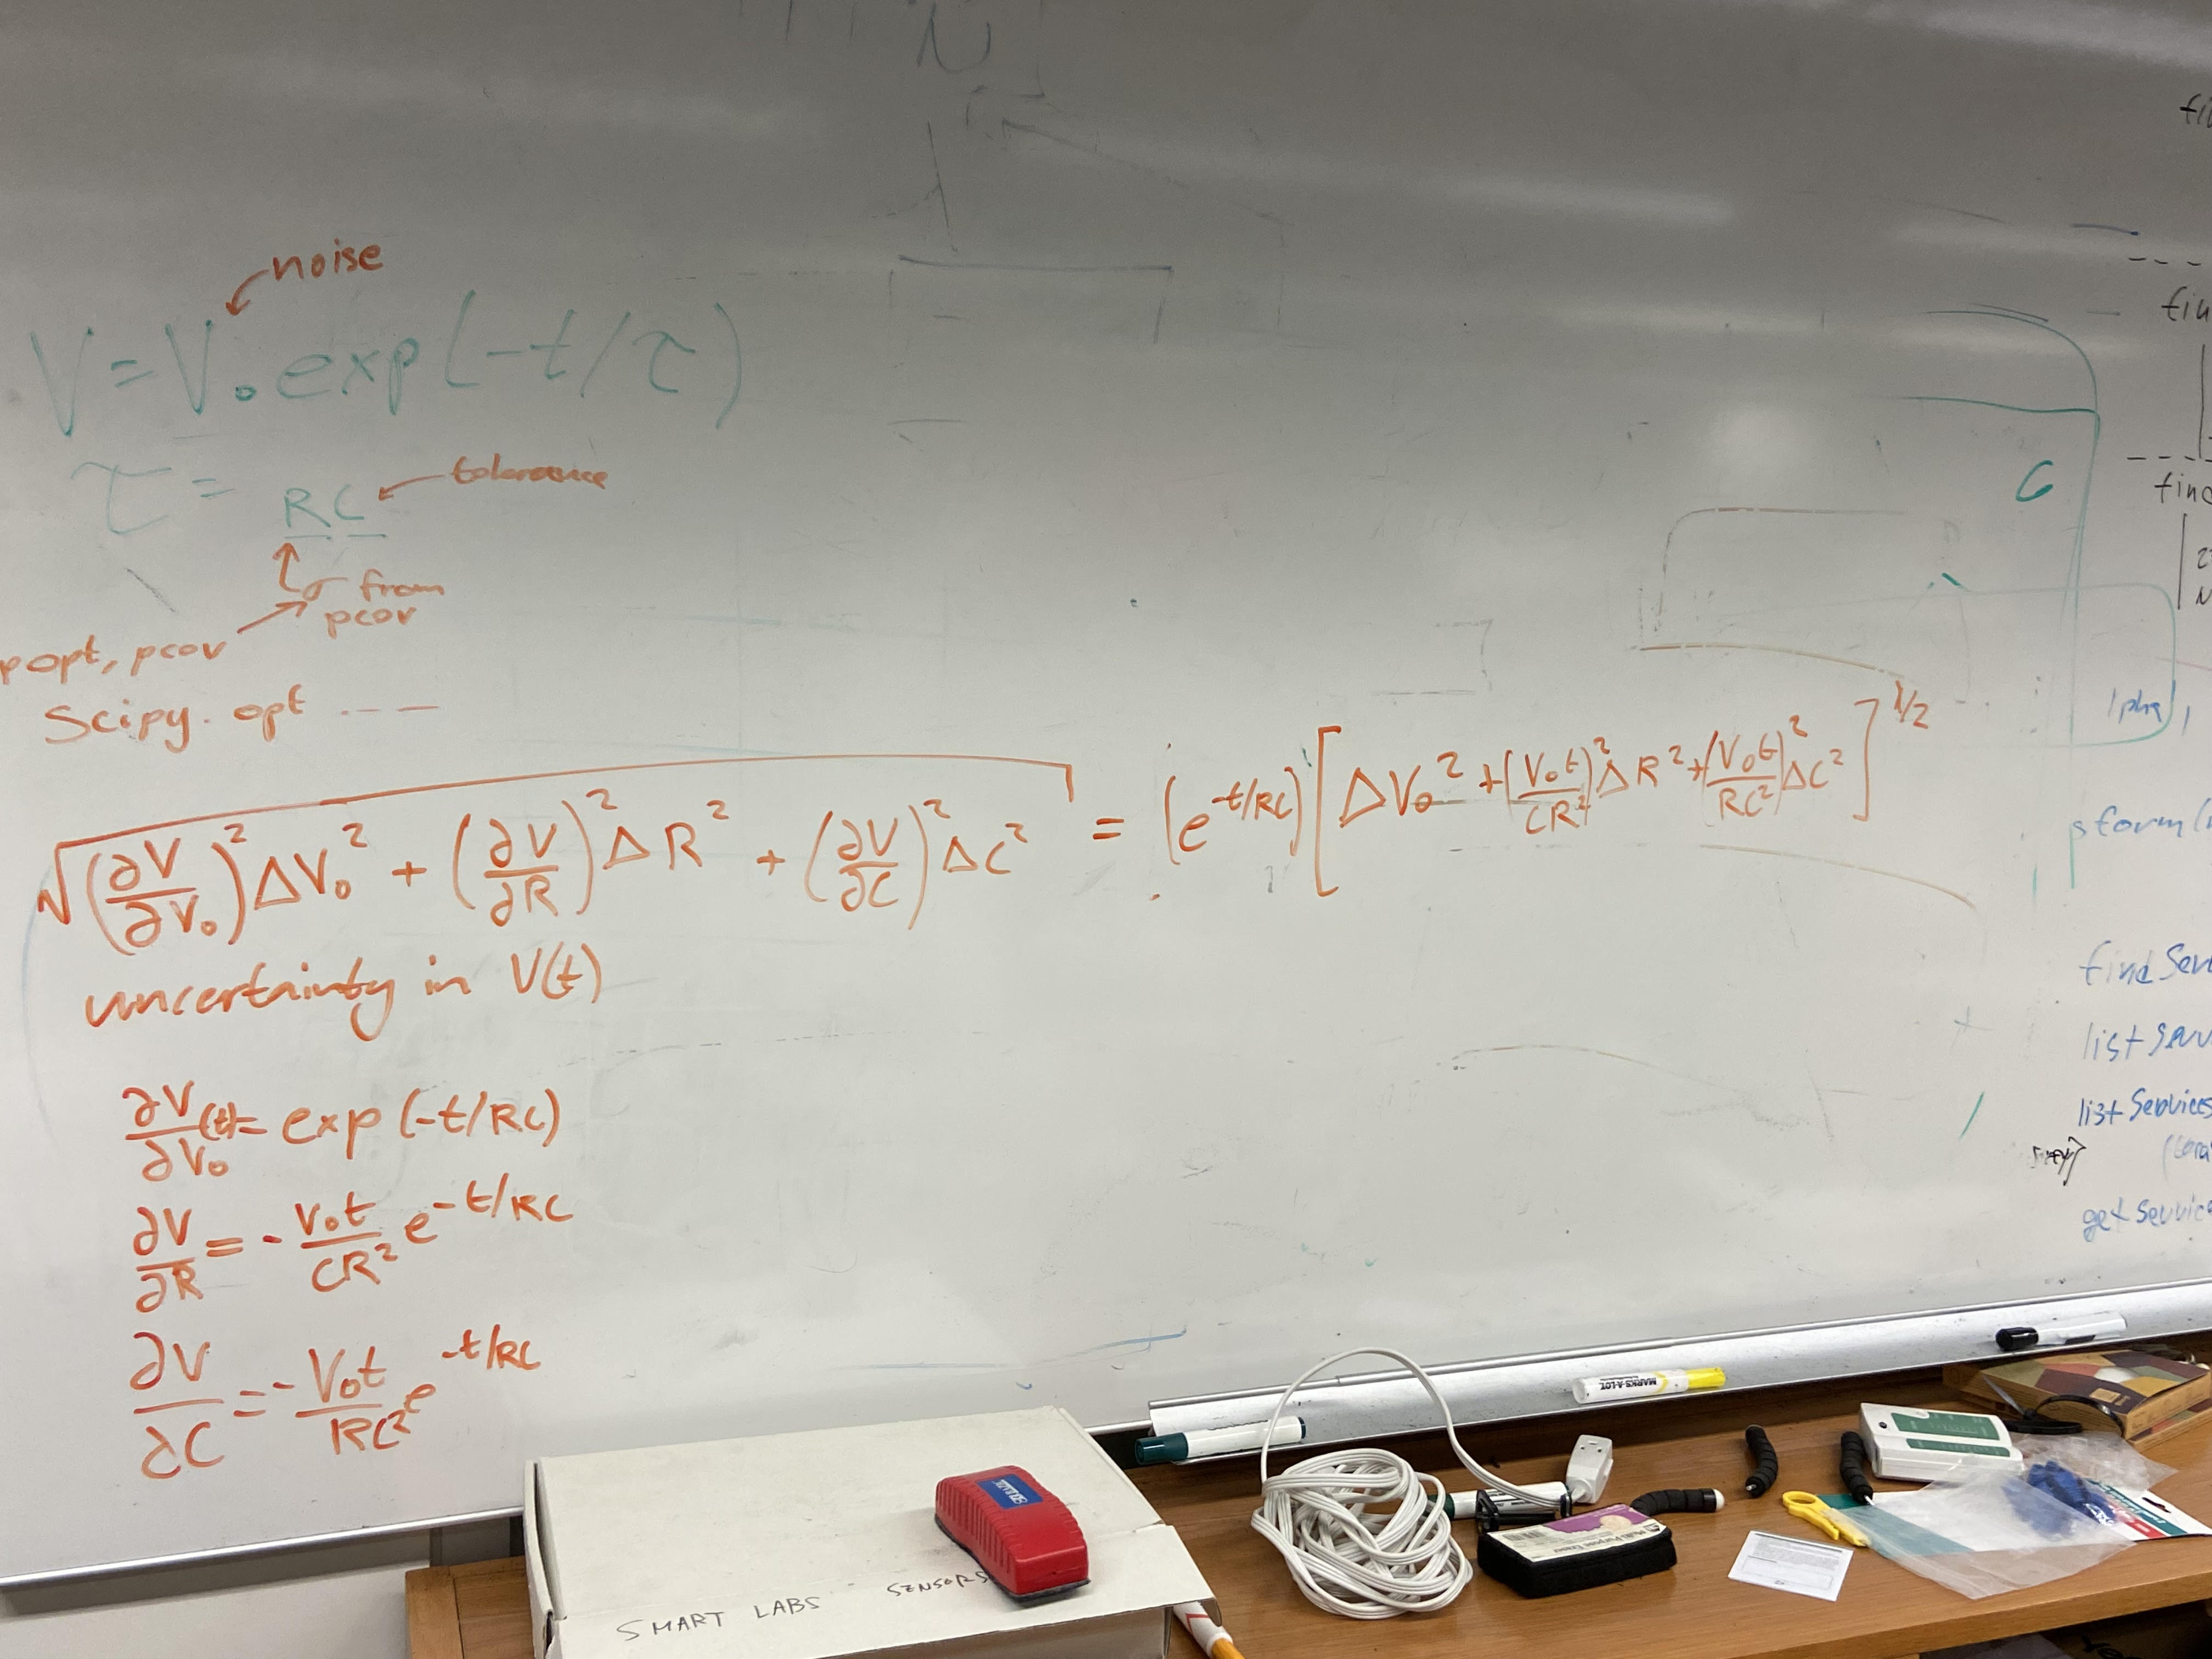 N
noise
V = V₀ exp(-t/τ)
τ = RC
tolerance
σ from
pcov
popt, pcov
Scipy. opt ---
√((∂V/∂V₀)² ΔV₀² + (∂V/∂R)² ΔR² + (∂V/∂C)² ΔC²) = (e^(-t/RC)) [ΔV₀² + (V₀t/CR²)² ΔR² + (V₀t/RC²)² ΔC²]^(1/2)
uncertainty in V(t)
∂V/∂V₀ (t) = exp(-t/RC)
∂V/∂R = - V₀t/CR² e^(-t/RC)
∂V/∂C = - V₀t/RC² e^(-t/RC)
G
fin
find
find Serv
list serv
list Services
get Service
MARKS-A-LOT
SMART LABS SENSORS